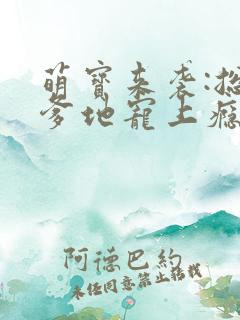 萌寶來袭:
爹地寵上癮
阿德巴約
未经同意禁止转载